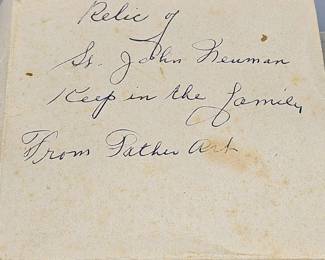 Relic of
St. John Neuman
Keep in the family
From Father Art